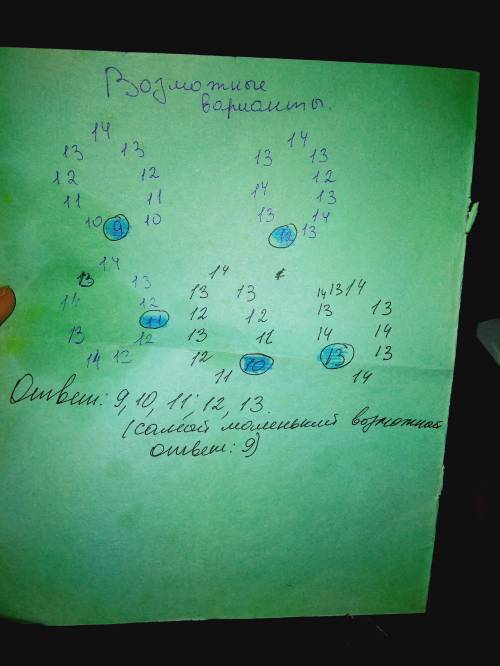 Возможные
варианты.
14
13 13
12 12
11 11
10 9 10
14
13 13
12
14 13
13 14
12 13
14
13 13
11 12
11
13 12
14 13
14
13 13
12 12
13 11
12 10
11
14 13 14
13 13
14 14
13 13
14
Ответ: 9, 10, 11; 12, 13.
(самой маленький возможной
ответ: 9)